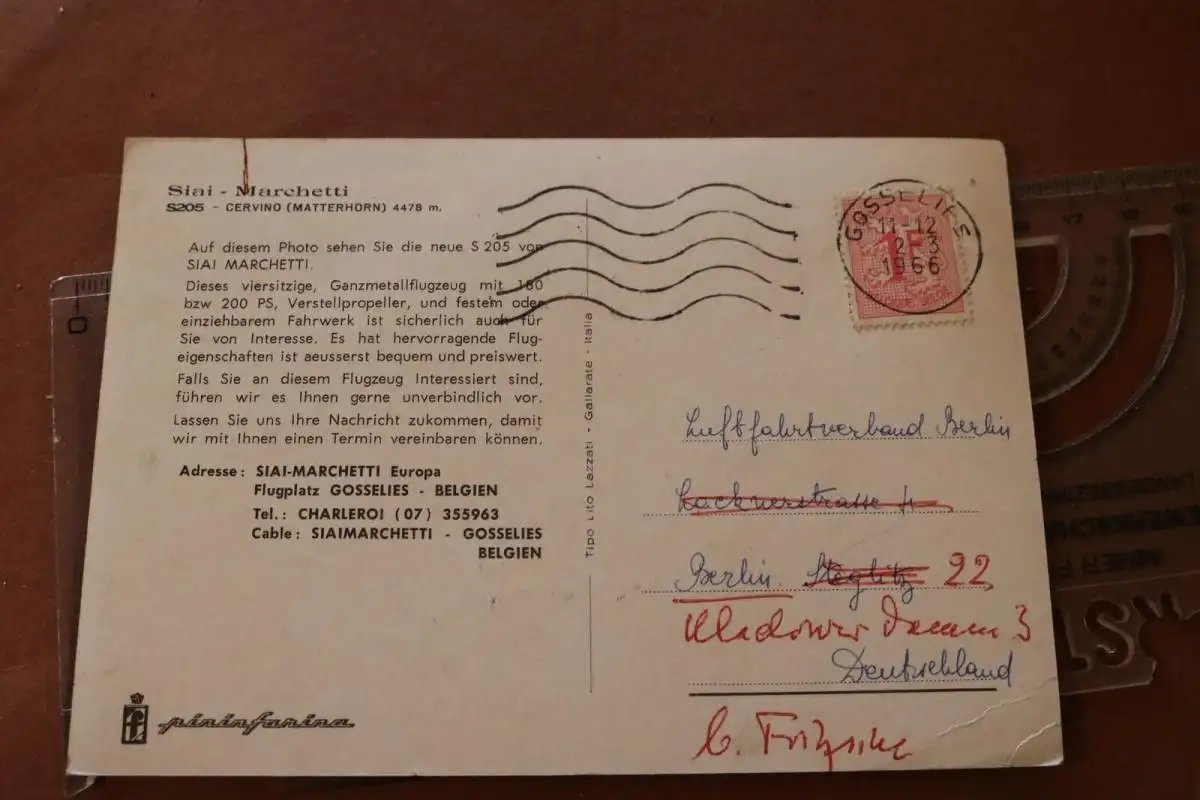 Siai - Marchetti
S205 - CERVINO (MATTERHORN) 4478 m.
Auf diesem Photo sehen Sie die neue S 205 von
SIAI MARCHETTI.
Dieses viersitzige, Ganzmetallflugzeug mit 180
bzw 200 PS, Verstellpropeller, und festem oder
einziehbarem Fahrwerk ist sicherlich auch für
Sie von Interesse. Es hat hervorragende Flug-
eigenschaften ist aeusserst bequem und preiswert.
Falls Sie an diesem Flugzeug Interessiert sind,
führen wir es Ihnen gerne unverbindlich vor.
Lassen Sie uns Ihre Nachricht zukommen, damit
wir mit Ihnen einen Termin vereinbaren können.
Adresse: SIAI-MARCHETTI Europa
Flugplatz GOSSELIES - BELGIEN
Tel.: CHARLEROI (07) 355963
Cable: SIAIMARCHETTI - GOSSELIES
BELGIEN
pininfarina
Tipo Lito Lazzati - Gallarate - Italia
GOSSELIES
11-12
2-3
1966
1F
Luftfahrtverband Berlin
Lacknerstrasse 4
Berlin. Steglitz 22
Kladower Damm 3
Deutschland
b. Fritzsche
0
17
18